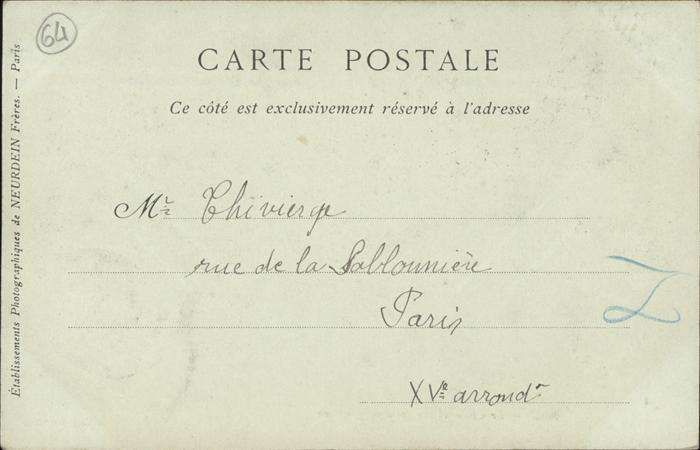 64
CARTE POSTALE
Ce côté est exclusivement réservé à l'adresse
Mr Thivierge
rue de la Sablonnière
Paris
XVe arrondt
Établissements Photographiques de NEURDEIN Frères. — Paris